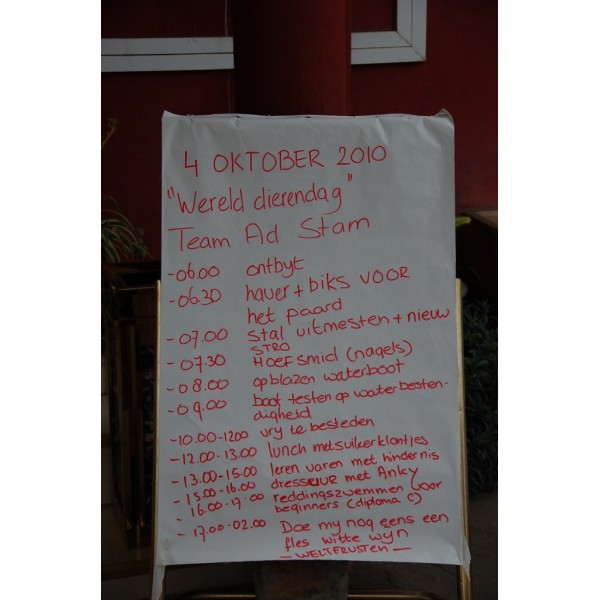 4 OKTOBER 2010
"Wereld dierendag"
Team Ad Stam
-06.00 ontbyt
-06.30 haver + biks VOOR
het paard
-07.00 Stal uitmesten + nieuw
STRO
-07.30 HOEFSmid (nagels)
-08.00 opblazen waterboot
-09.00 boot testen op waterbesten-
digheid
-10.00-1200 vry te besteden
-12.00-13.00 lunch met suikerklontjes
-13.00-15.00 leren varen met hindernis
-15.00-16.00 dressuur met Anky
-16.00-17.00 reddingszwemmen voor
beginners (diploma C)
-17.00-02.00 Doe my nog eens een
fles witte wyn
- WELTERUSTEN -